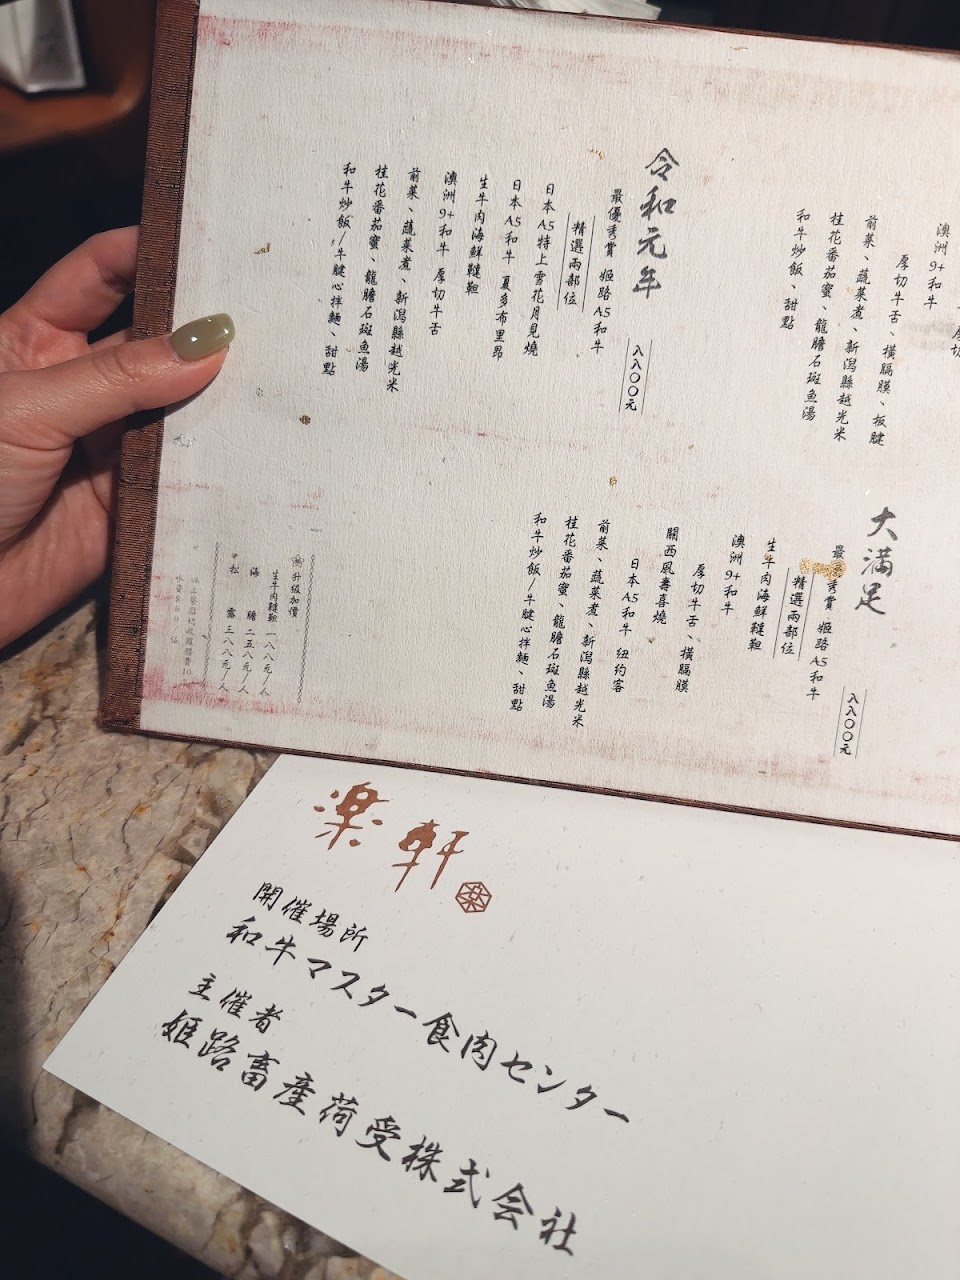 澳洲9+和牛
厚切牛舌、橫膈膜、板腱
前菜、蔬菜煮、新潟縣越光米
桂花番茄蜜、龍膽石斑魚湯
和牛炒飯、甜點
令和元年
八八〇〇元
最優秀賞 姬路A5和牛
精選兩部位
日本A5特上雪花月見燒
日本A5和牛 夏多布里昂
生牛肉海鮮韃靼
澳洲9+和牛 厚切牛舌
前菜、蔬菜煮、新潟縣越光米
桂花番茄蜜、龍膽石斑魚湯
和牛炒飯/牛腱心拌麵、甜點
大滿足
八八〇〇元
最優秀賞 姬路A5和牛
精選兩部位
生牛肉海鮮韃靼
澳洲9+和牛
厚切牛舌、橫膈膜
關西風壽喜燒
日本A5和牛 紐約客
前菜、蔬菜煮、新潟縣越光米
桂花番茄蜜、龍膽石斑魚湯
和牛炒飯/牛腱心拌麵、甜點
升級加價
生牛肉韃靼 一八八元/人
海膽 二五八元/人
松露 三八八元/人
楽軒
楽
開催場所
和牛マスター食肉センター
主催者
姫路畜産荷受株式会社